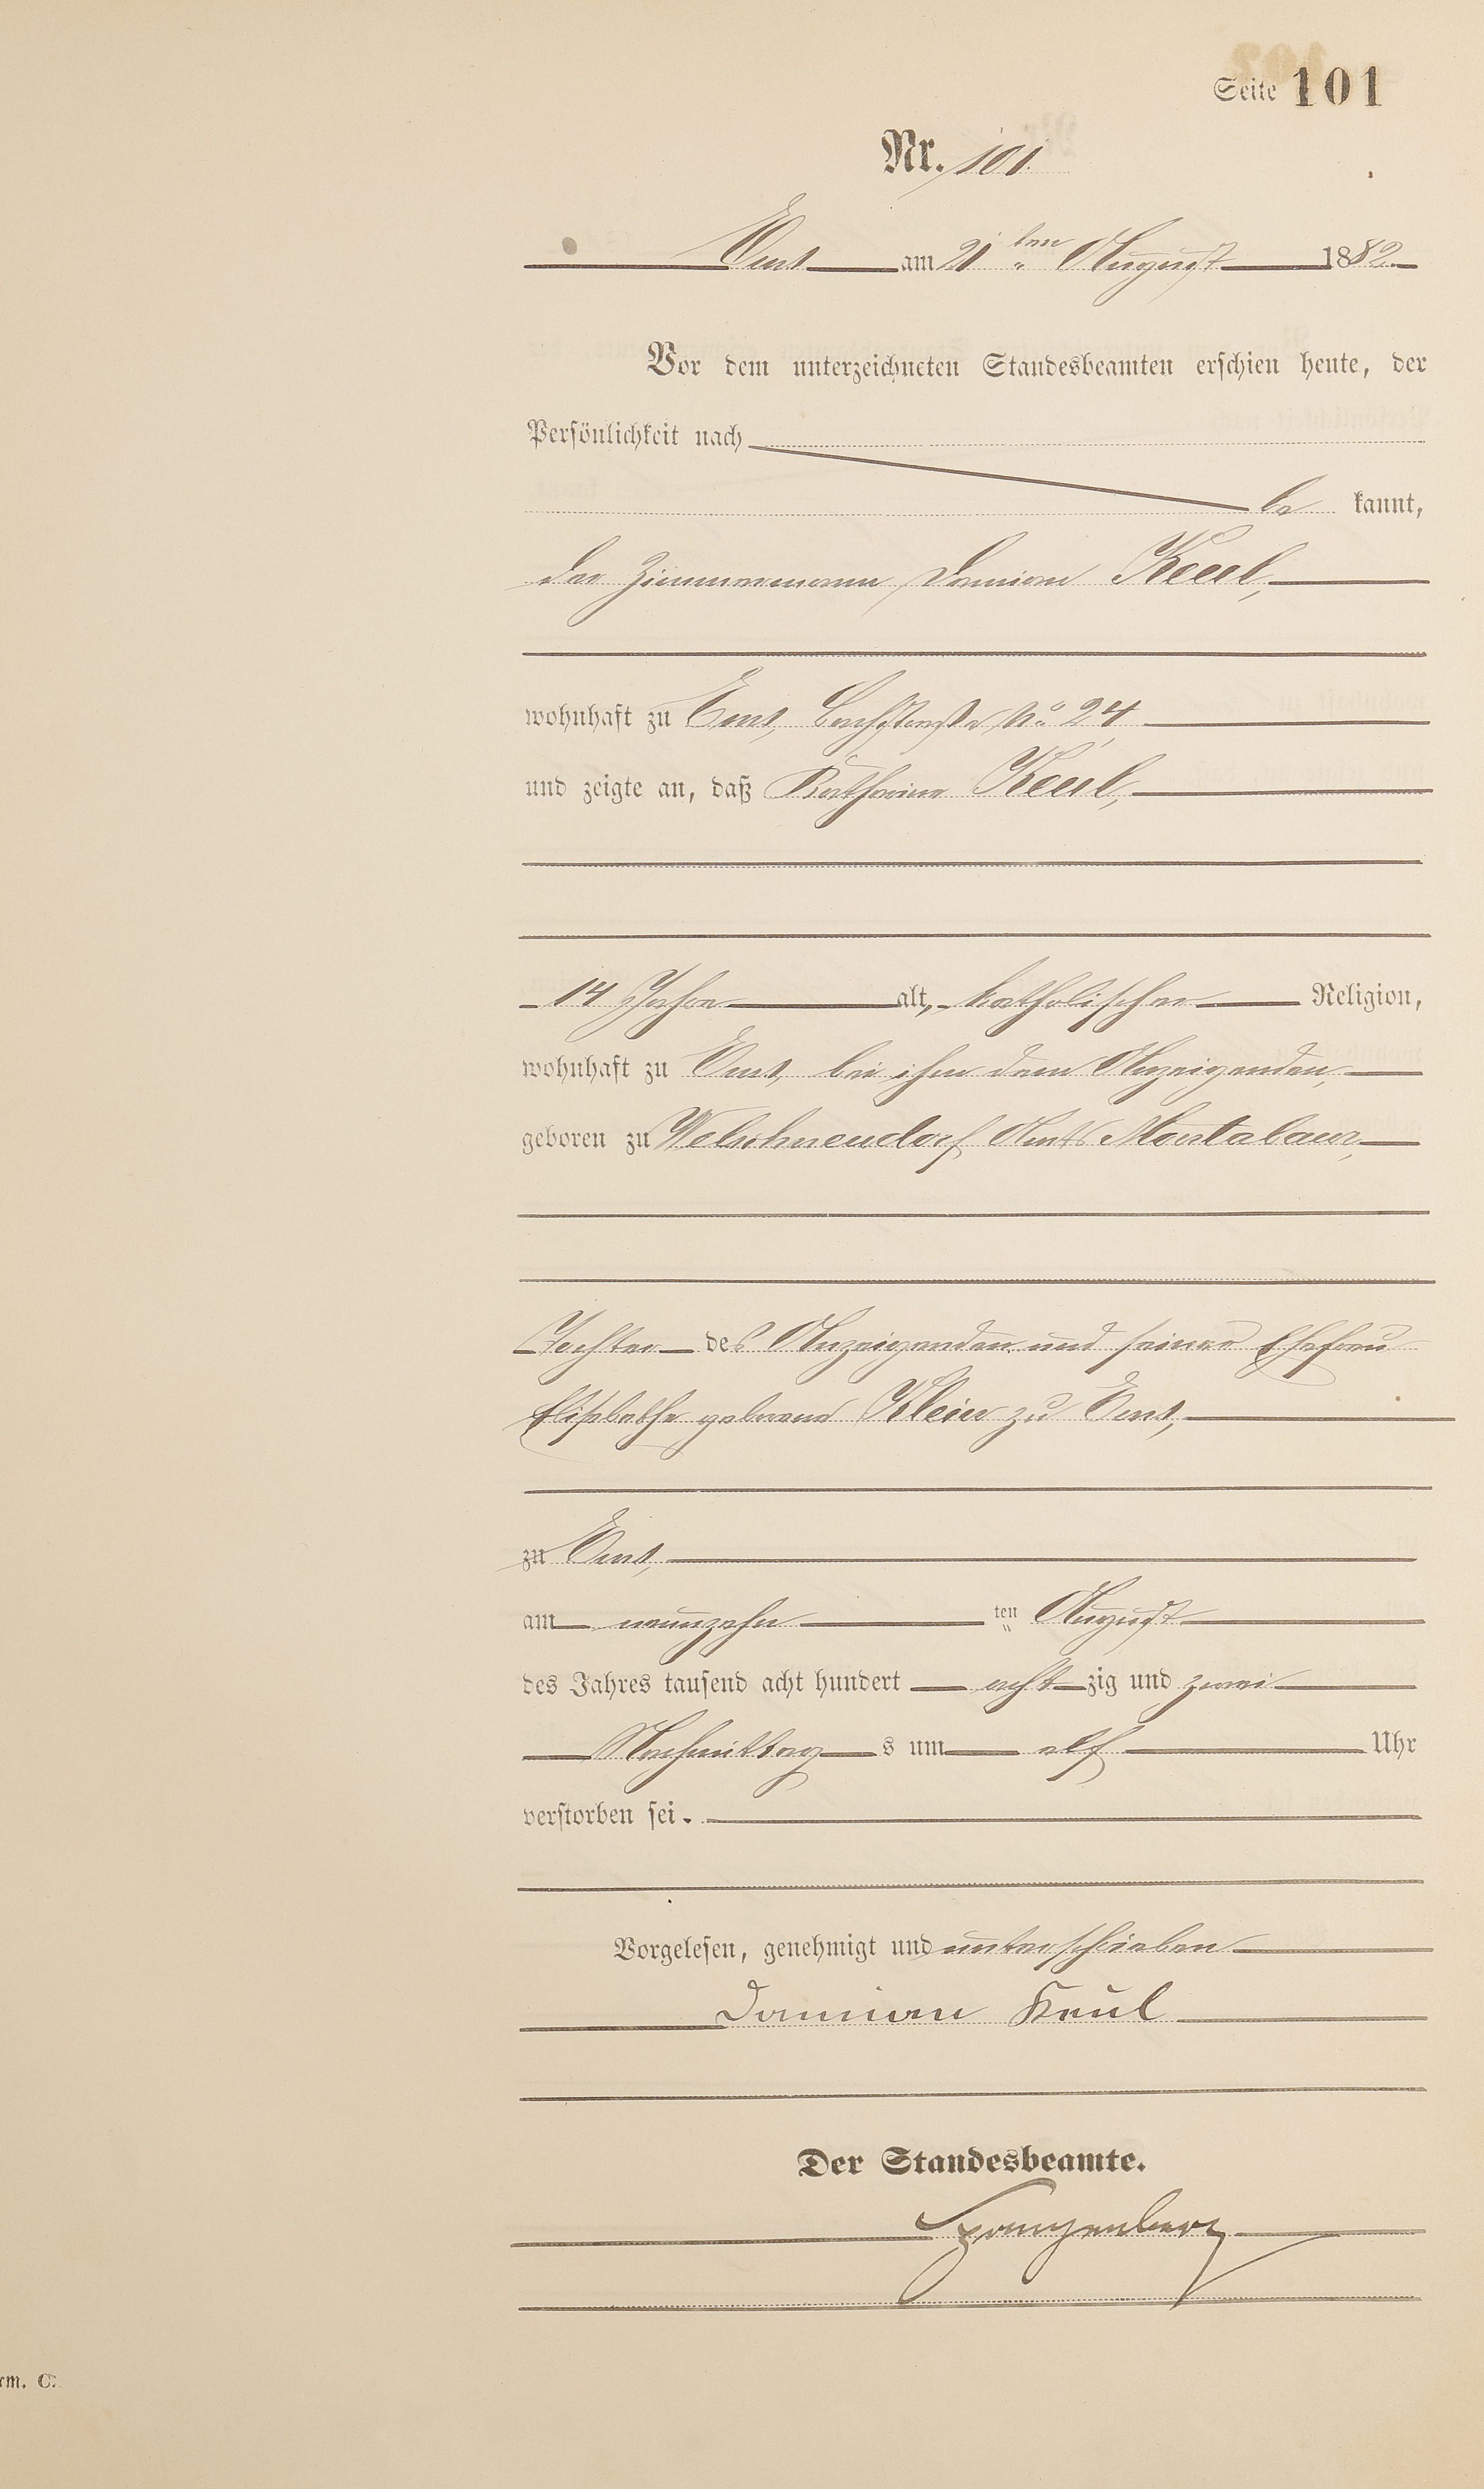 Seite 101
Nr. 101.
Ems am 21ten August 1882.
Vor dem unterzeichneten Standesbeamten erschien heute, der
Persönlichkeit nach
be kannt,
der Zimmermann Damian Keul,
wohnhaft zu Ems, Bachstraße No 24
und zeigte an, daß Katharina Keul,
14 Jahre alt, katholischer Religion,
wohnhaft zu Ems, bei ihm dem Anzeigenden,
geboren zu Welschneudorf Amts Montabaur,
Tochter des Anzeigenden und seiner Ehefrau
Elisabetha geborene Klein zu Ems,
zu Ems,
am neunzehn ten August
des Jahres tausend acht hundert acht zig und zwei
Nachmittag s um elf Uhr
verstorben sei.
Vorgelesen, genehmigt und unterschrieben
Damian Keul
Der Standesbeamte.
Spangenberg
rm. C.